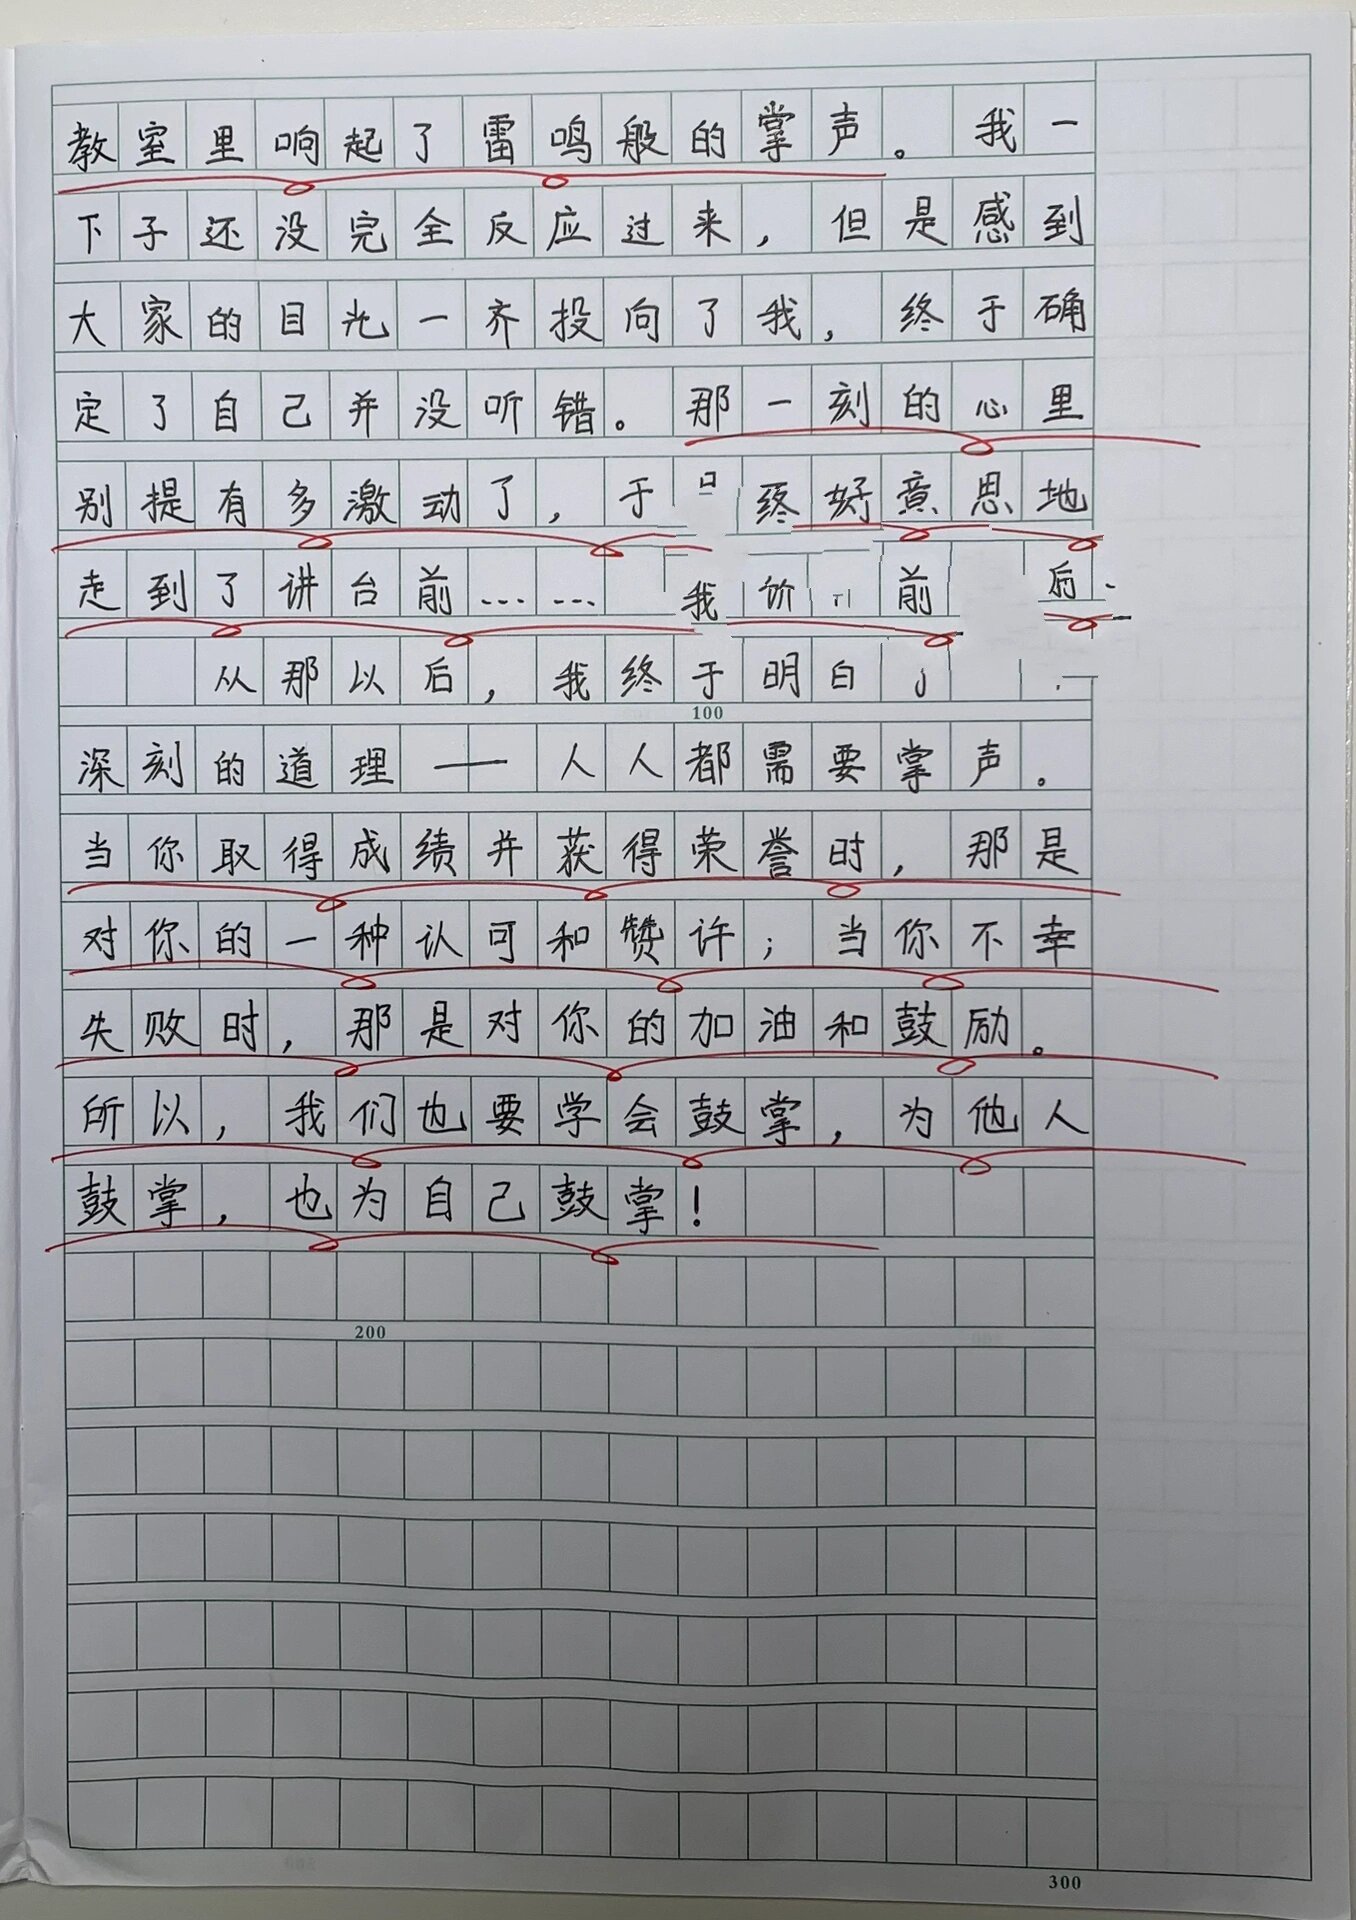 教室里响起了雷鸣般的掌声。我一
下子还没完全反应过来，但是感到
大家的目光一齐投向了我，终于确
定了自己并没听错。那一刻的心里
别提有多激动了，于终好意思地
走到了讲台前……我前后
从那以后，我终于明白
100
深刻的道理——人人都需要掌声。
当你取得成绩并获得荣誉时，那是
对你的一种认可和赞许；当你不幸
失败时，那是对你的加油和鼓励。
所以，我们也要学会鼓掌，为他人
鼓掌，也为自己鼓掌！
200
300